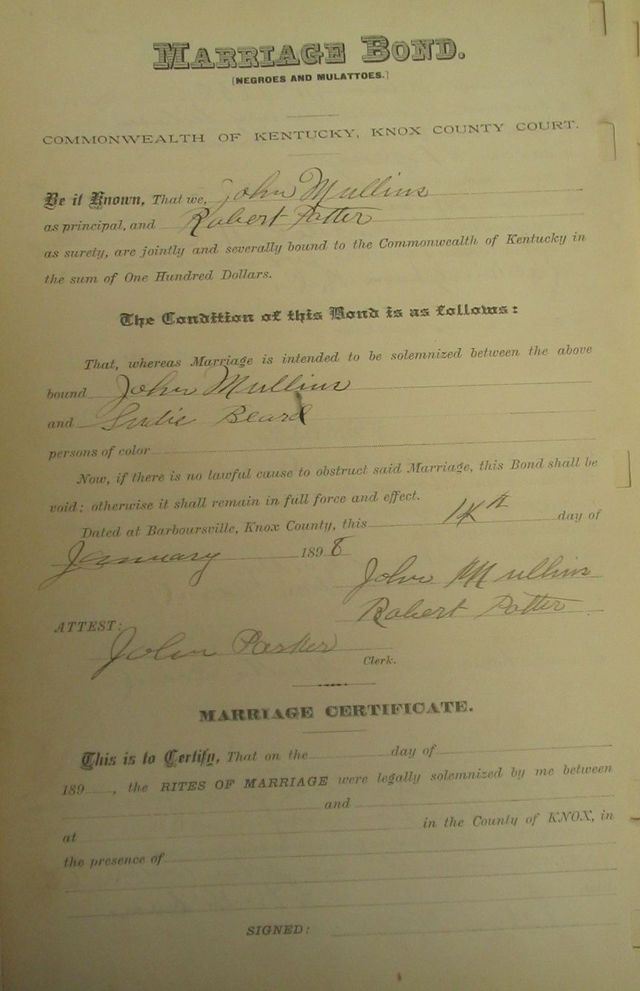 MARRIAGE BOND.
[NEGROES AND MULATTOES.]
COMMONWEALTH OF KENTUCKY, KNOX COUNTY COURT.
Be it Known, That we, John Mullins
as principal, and Robert Potter
as surety, are jointly and severally bound to the Commonwealth of Kentucky in
the sum of One Hundred Dollars.
The Condition of this Bond is as follows:
That, whereas Marriage is intended to be solemnized between the above
bound John Mullins
and Beard
persons of color
Now, if there is no lawful cause to obstruct said Marriage, this Bond shall be
void; otherwise it shall remain in full force and effect.
Dated at Barboursville, Knox County, this 14th day of
January 1898
John Mullins
Robert Potter
ATTEST:
John Parker
Clerk.
MARRIAGE CERTIFICATE.
This is to Certify, That on the day of
189 , the RITES OF MARRIAGE were legally solemnized by me between
and
at in the County of KNOX, in
the presence of
SIGNED: